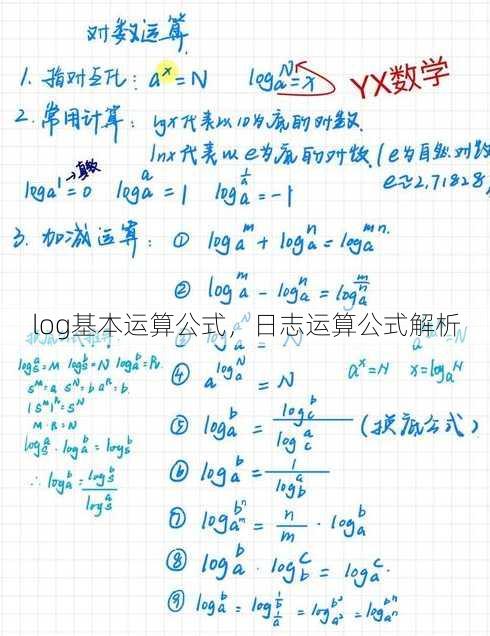 对数运算
1. 指对互化: a^x=N log_a^N=x YX数学
2. 常用计算: lgx代表以10为底的对数
lnx代表以e为底的对数 (e为自然对数
→真数 e≈2.71828
log_a^1=0 log_a^a=1 log_a^{1/a}=-1
3. 加减运算: ① log_a^m + log_a^n = log_a^{mn}.
② log_a^m - log_a^n = log_a^{m/n}
log基本运算公式，日志运算公式解析
④ a^{log_a^N} = N a^x=N x=log_a^N
⑤ log_a^b = log_c^b / log_c^a (换底公式)
⑥ log_a^b = 1 / log_b^a
⑦ log_{a^m}^{b^n} = n/m · log_a^b
⑧ log_a^b · log_b^c = log_a^c.
log_s^a · log_a^b = log_s^b
∴ log_a^b = log_s^b / log_s^a